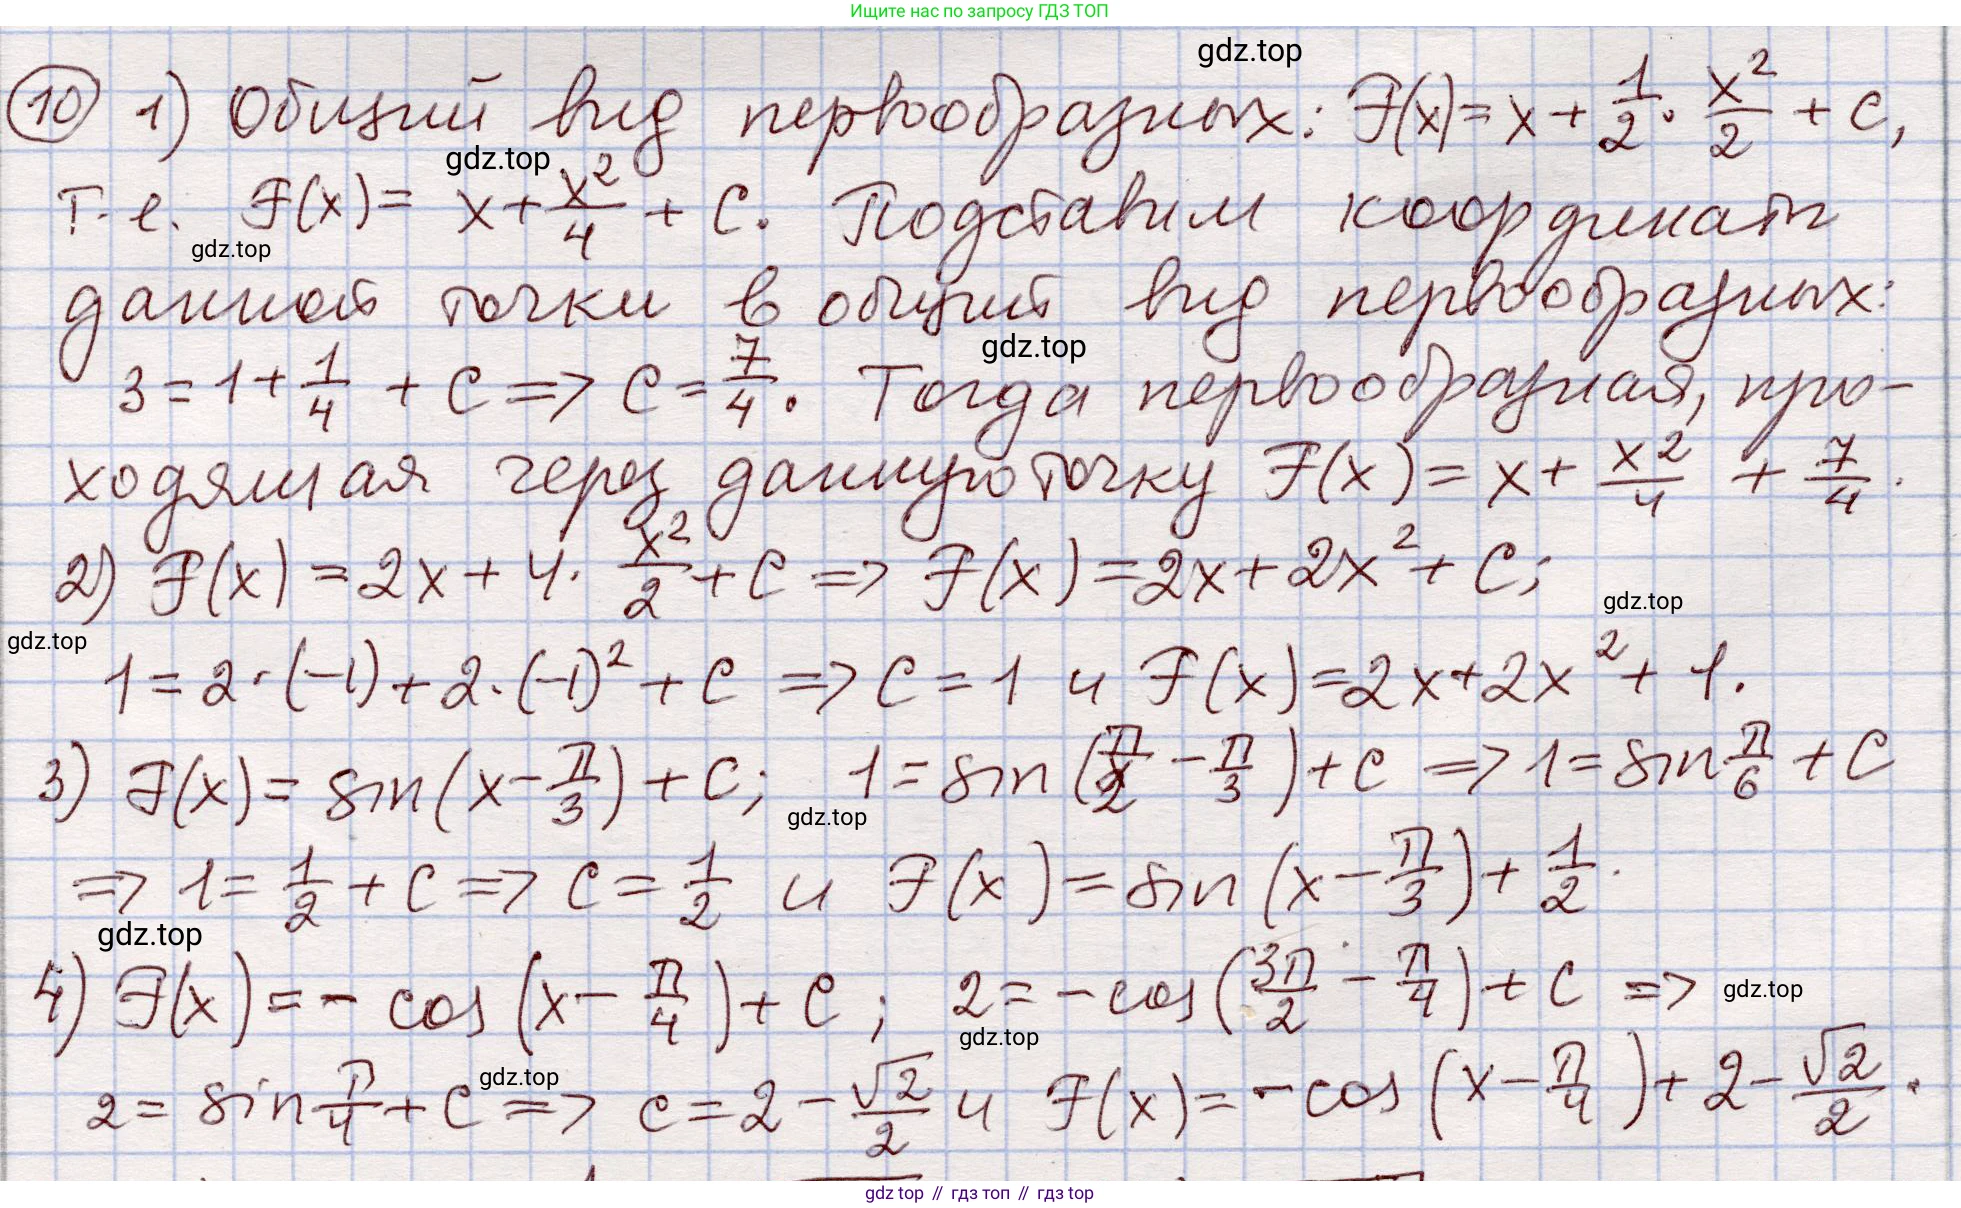 Ищите нас по запросу ГДЗ ТОП
gdz.top
10 1) Общий вид первообразных: F(x) = x + 1/2 · x²/2 + C,
gdz.top
т.е. F(x) = x + x²/4 + C. Подставим координаты
gdz.top
данной точки в общий вид первообразных:
gdz.top
3 = 1 + 1/4 + C => C = 7/4. Тогда первообразная, про-
ходящая через данную точку F(x) = x + x²/4 + 7/4.
2) F(x) = 2x + 4 · x²/2 + C => F(x) = 2x + 2x² + C;
gdz.top
gdz.top
1 = 2·(-1) + 2·(-1)² + C => C = 1 и F(x) = 2x + 2x² + 1.
3) F(x) = sin(x - π/3) + C; 1 = sin(π/2 - π/3) + C => 1 = sin π/6 + C
gdz.top
=> 1 = 1/2 + C => C = 1/2 и F(x) = sin(x - π/3) + 1/2.
gdz.top
4) F(x) = - cos(x - π/4) + C; 2 = - cos(3π/2 - π/4) + C =>
gdz.top
gdz.top
gdz.top
2 = sin π/4 + C => C = 2 - √2/2 и F(x) = - cos(x - π/4) + 2 - √2/2.
gdz top // гдз топ // гдз top